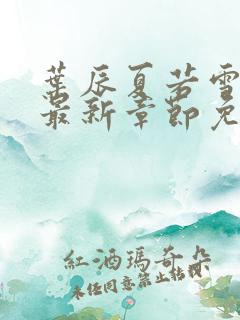 葉辰夏若雪
最新章節免
紅酒瑪奇朵
未經同意禁止轉載